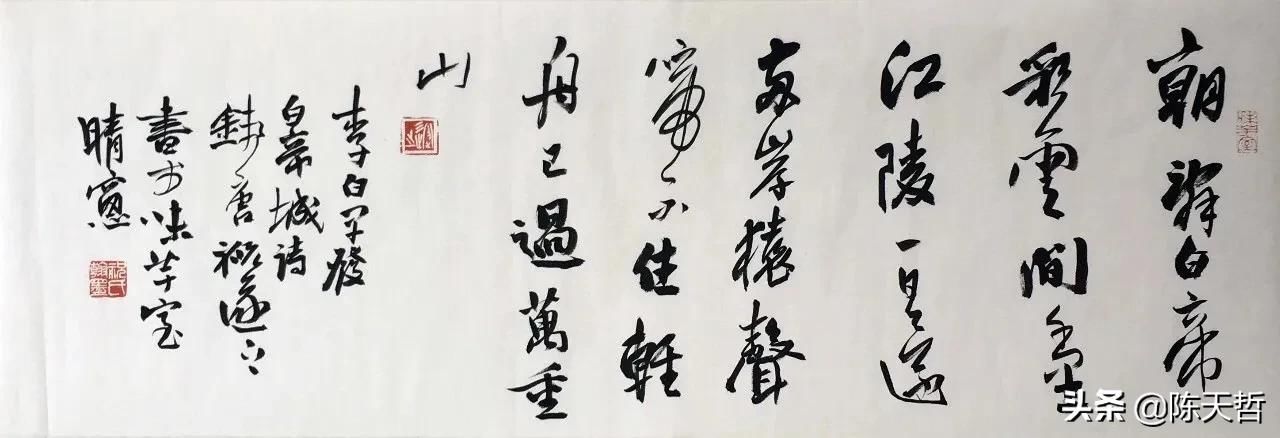 朝辭白帝
彩雲間千里
江陵一日還
兩岸猿聲
啼不住輕
舟已過萬重
山
李白早發
白帝城诗
錢唐祝遂之
書於味室
晴窻
祝氏翰墨
头条 @陈天哲